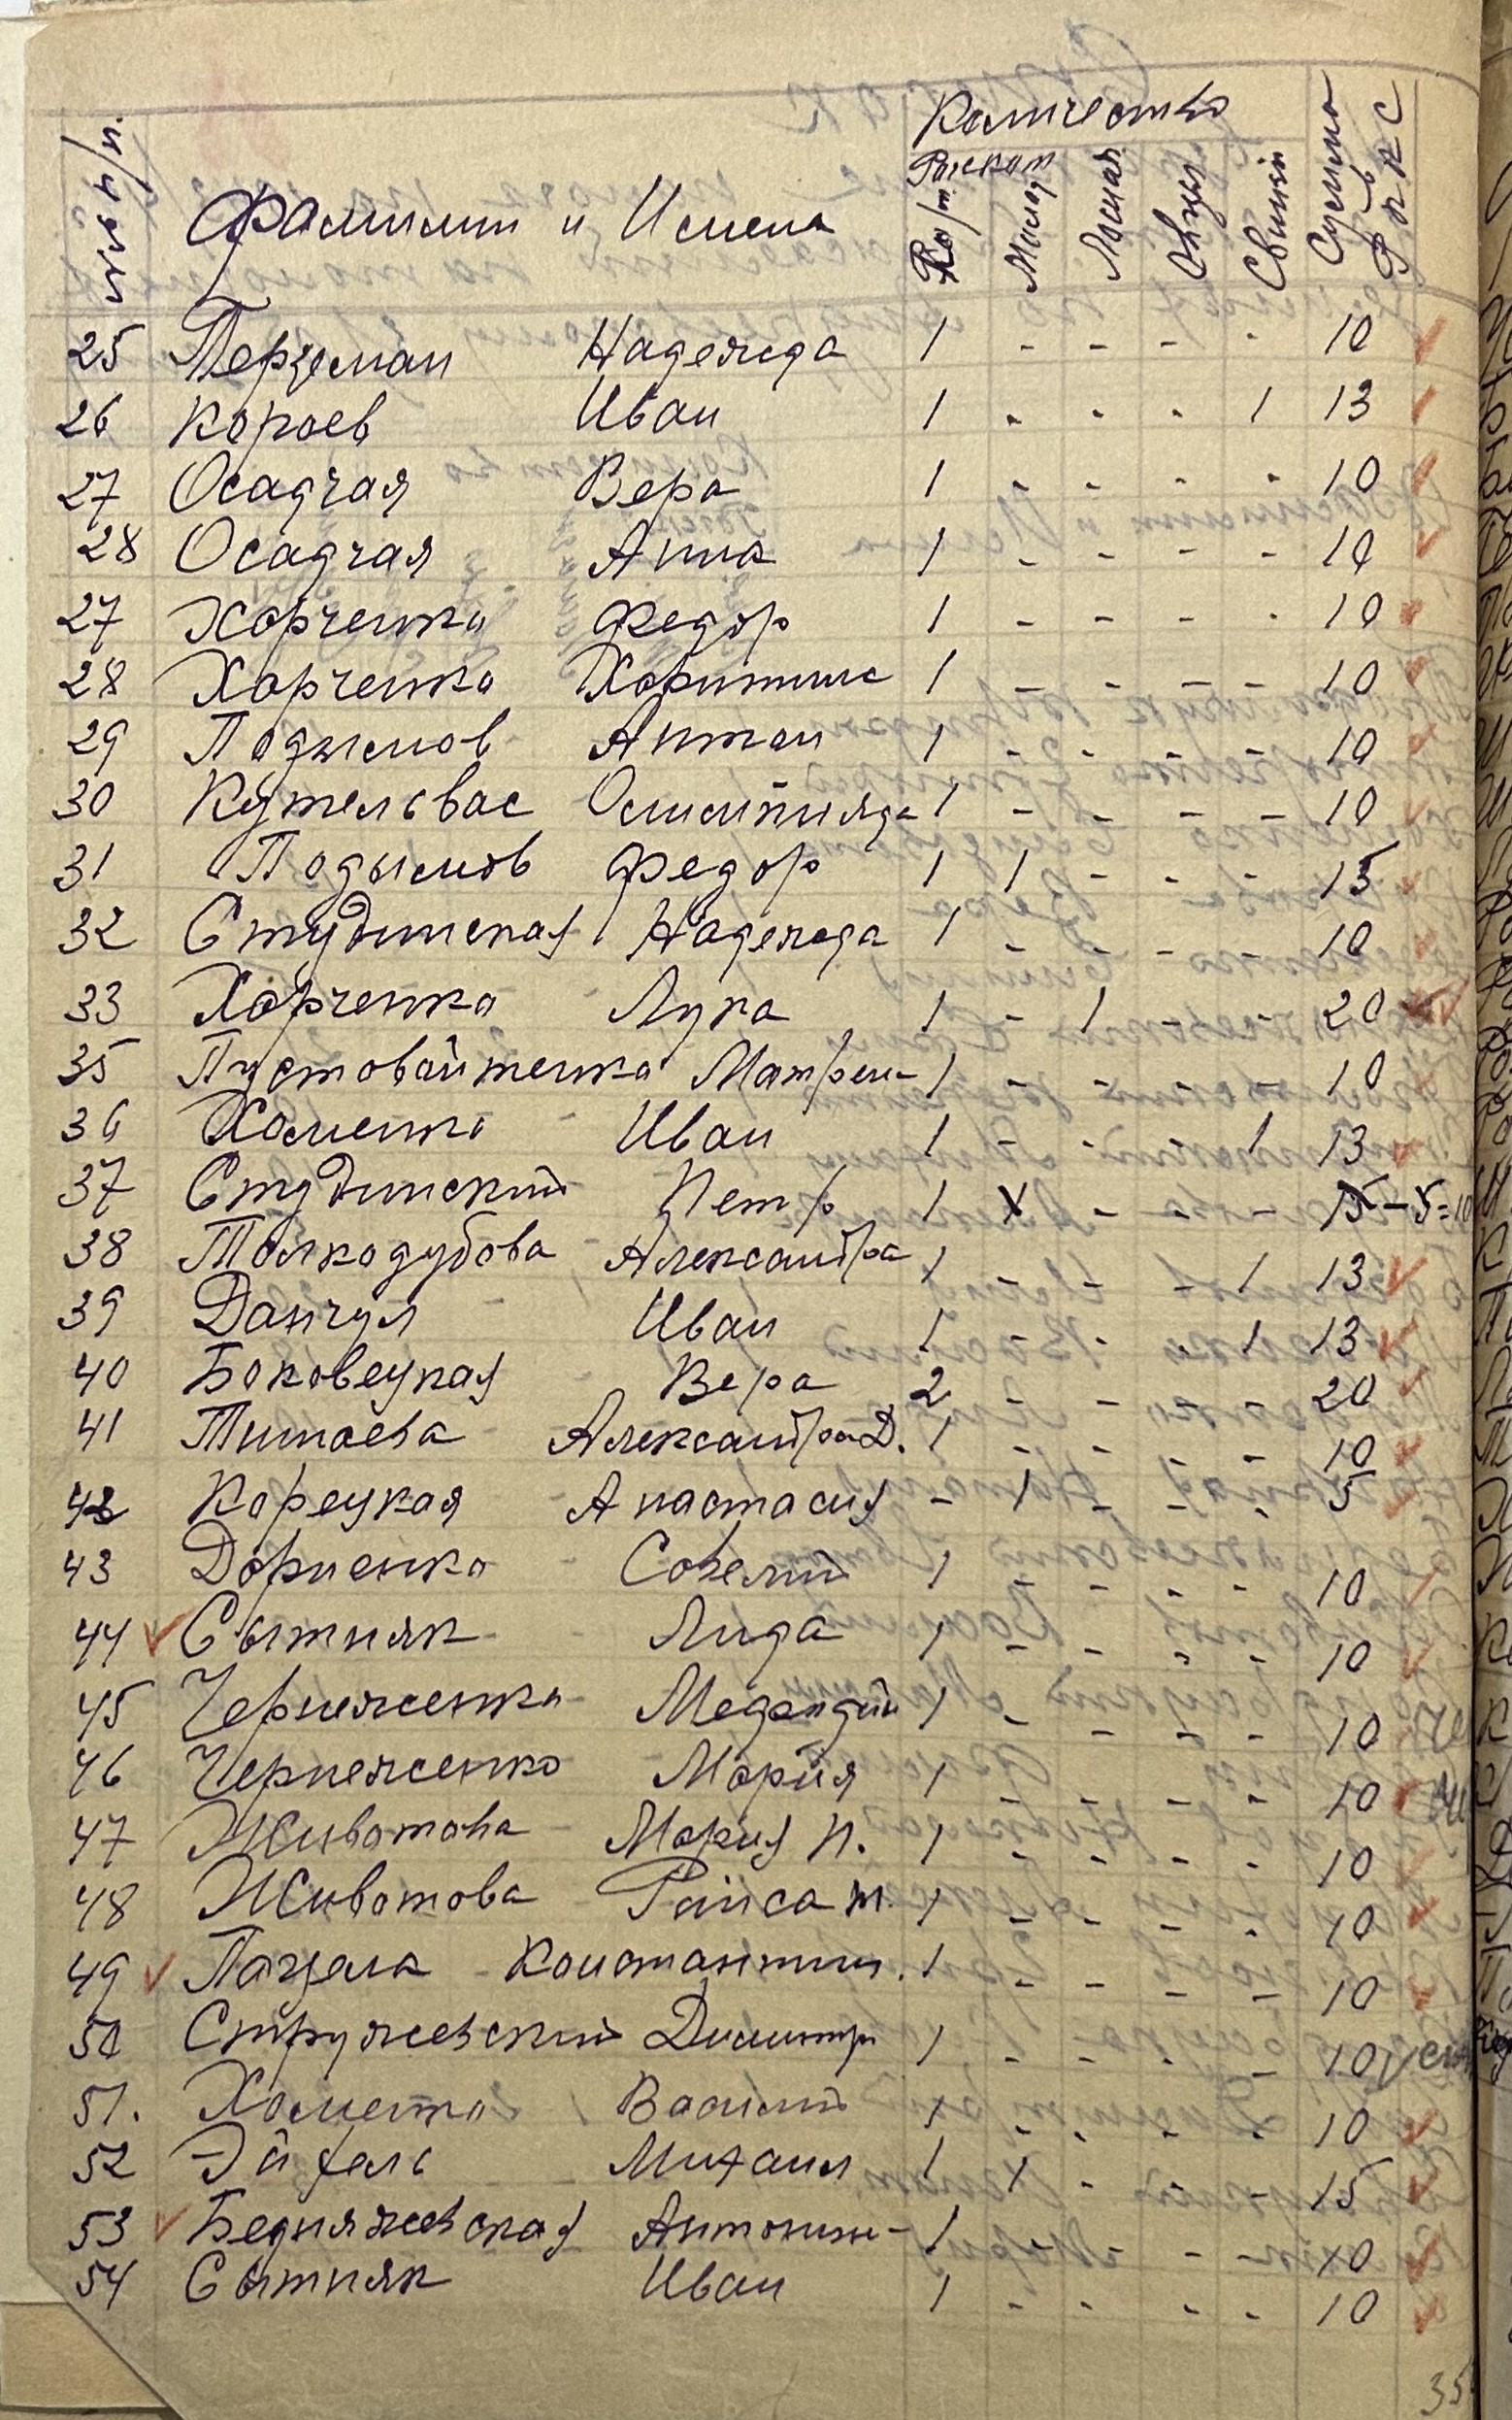 №№ п/п. Фамилии и Имена Количество Сумма в РККС
Рог.скот
Ко/т. Молод Лошая Овцы Свиней
25 Перцеман Надежда 1 - - - - 10
26 Короев Иван 1 - - - 1 13
27 Осадчая Вера 1 - - - - 10
28 Осадчая Анна 1 - - - - 10
27 Харченко Федор 1 - - - - 10
28 Харченко Харитина 1 - - - - 10
29 Подымов Антон 1 - - - - 10
30 Кутельвас Олимпияда 1 - - - - 10
31 Подымов Федор 1 1 - - - 15
32 Студинская Надежда 1 - - - - 10
33 Харченко Лука 1 - 1 - - 20
35 Пустовойтенко Матрена 1 - - - - 10
36 Хоменко Иван 1 - - - 1 13
37 Студинский Петр 1 X - - - 15-5=10
38 Толкодубова Александра 1 - - - 1 13
39 Данчул Иван 1 - - - 1 13
40 Боковецкая Вера 2 - - - - 20
41 Тимаева Александра Д. 1 - - - - 10
42 Корецкая Анастасия - 1 - - - 5
43 Дориенко Савелий 1 - - - - 10
44 Сытняк Лида 1 - - - - 10
45 Черпеженко 1 - - - - 10
46 Черпеженко Мария 1 - - - - 10
47 Животова Мария П. 1 - - - - 10
48 Животова Раиса М. 1 - - - - 10
49 Пацела Константин. 1 - - - - 10
50 Стружевский Димитр 1 - - - - 10
51. Хоменко Василий 1 - - - - 10
52 Эйхель Михаил 1 1 - - - 15
53 Бедняжевская Антонин- 1 - - - - 10
54 Сытняк Иван 1 - - - - 10
35